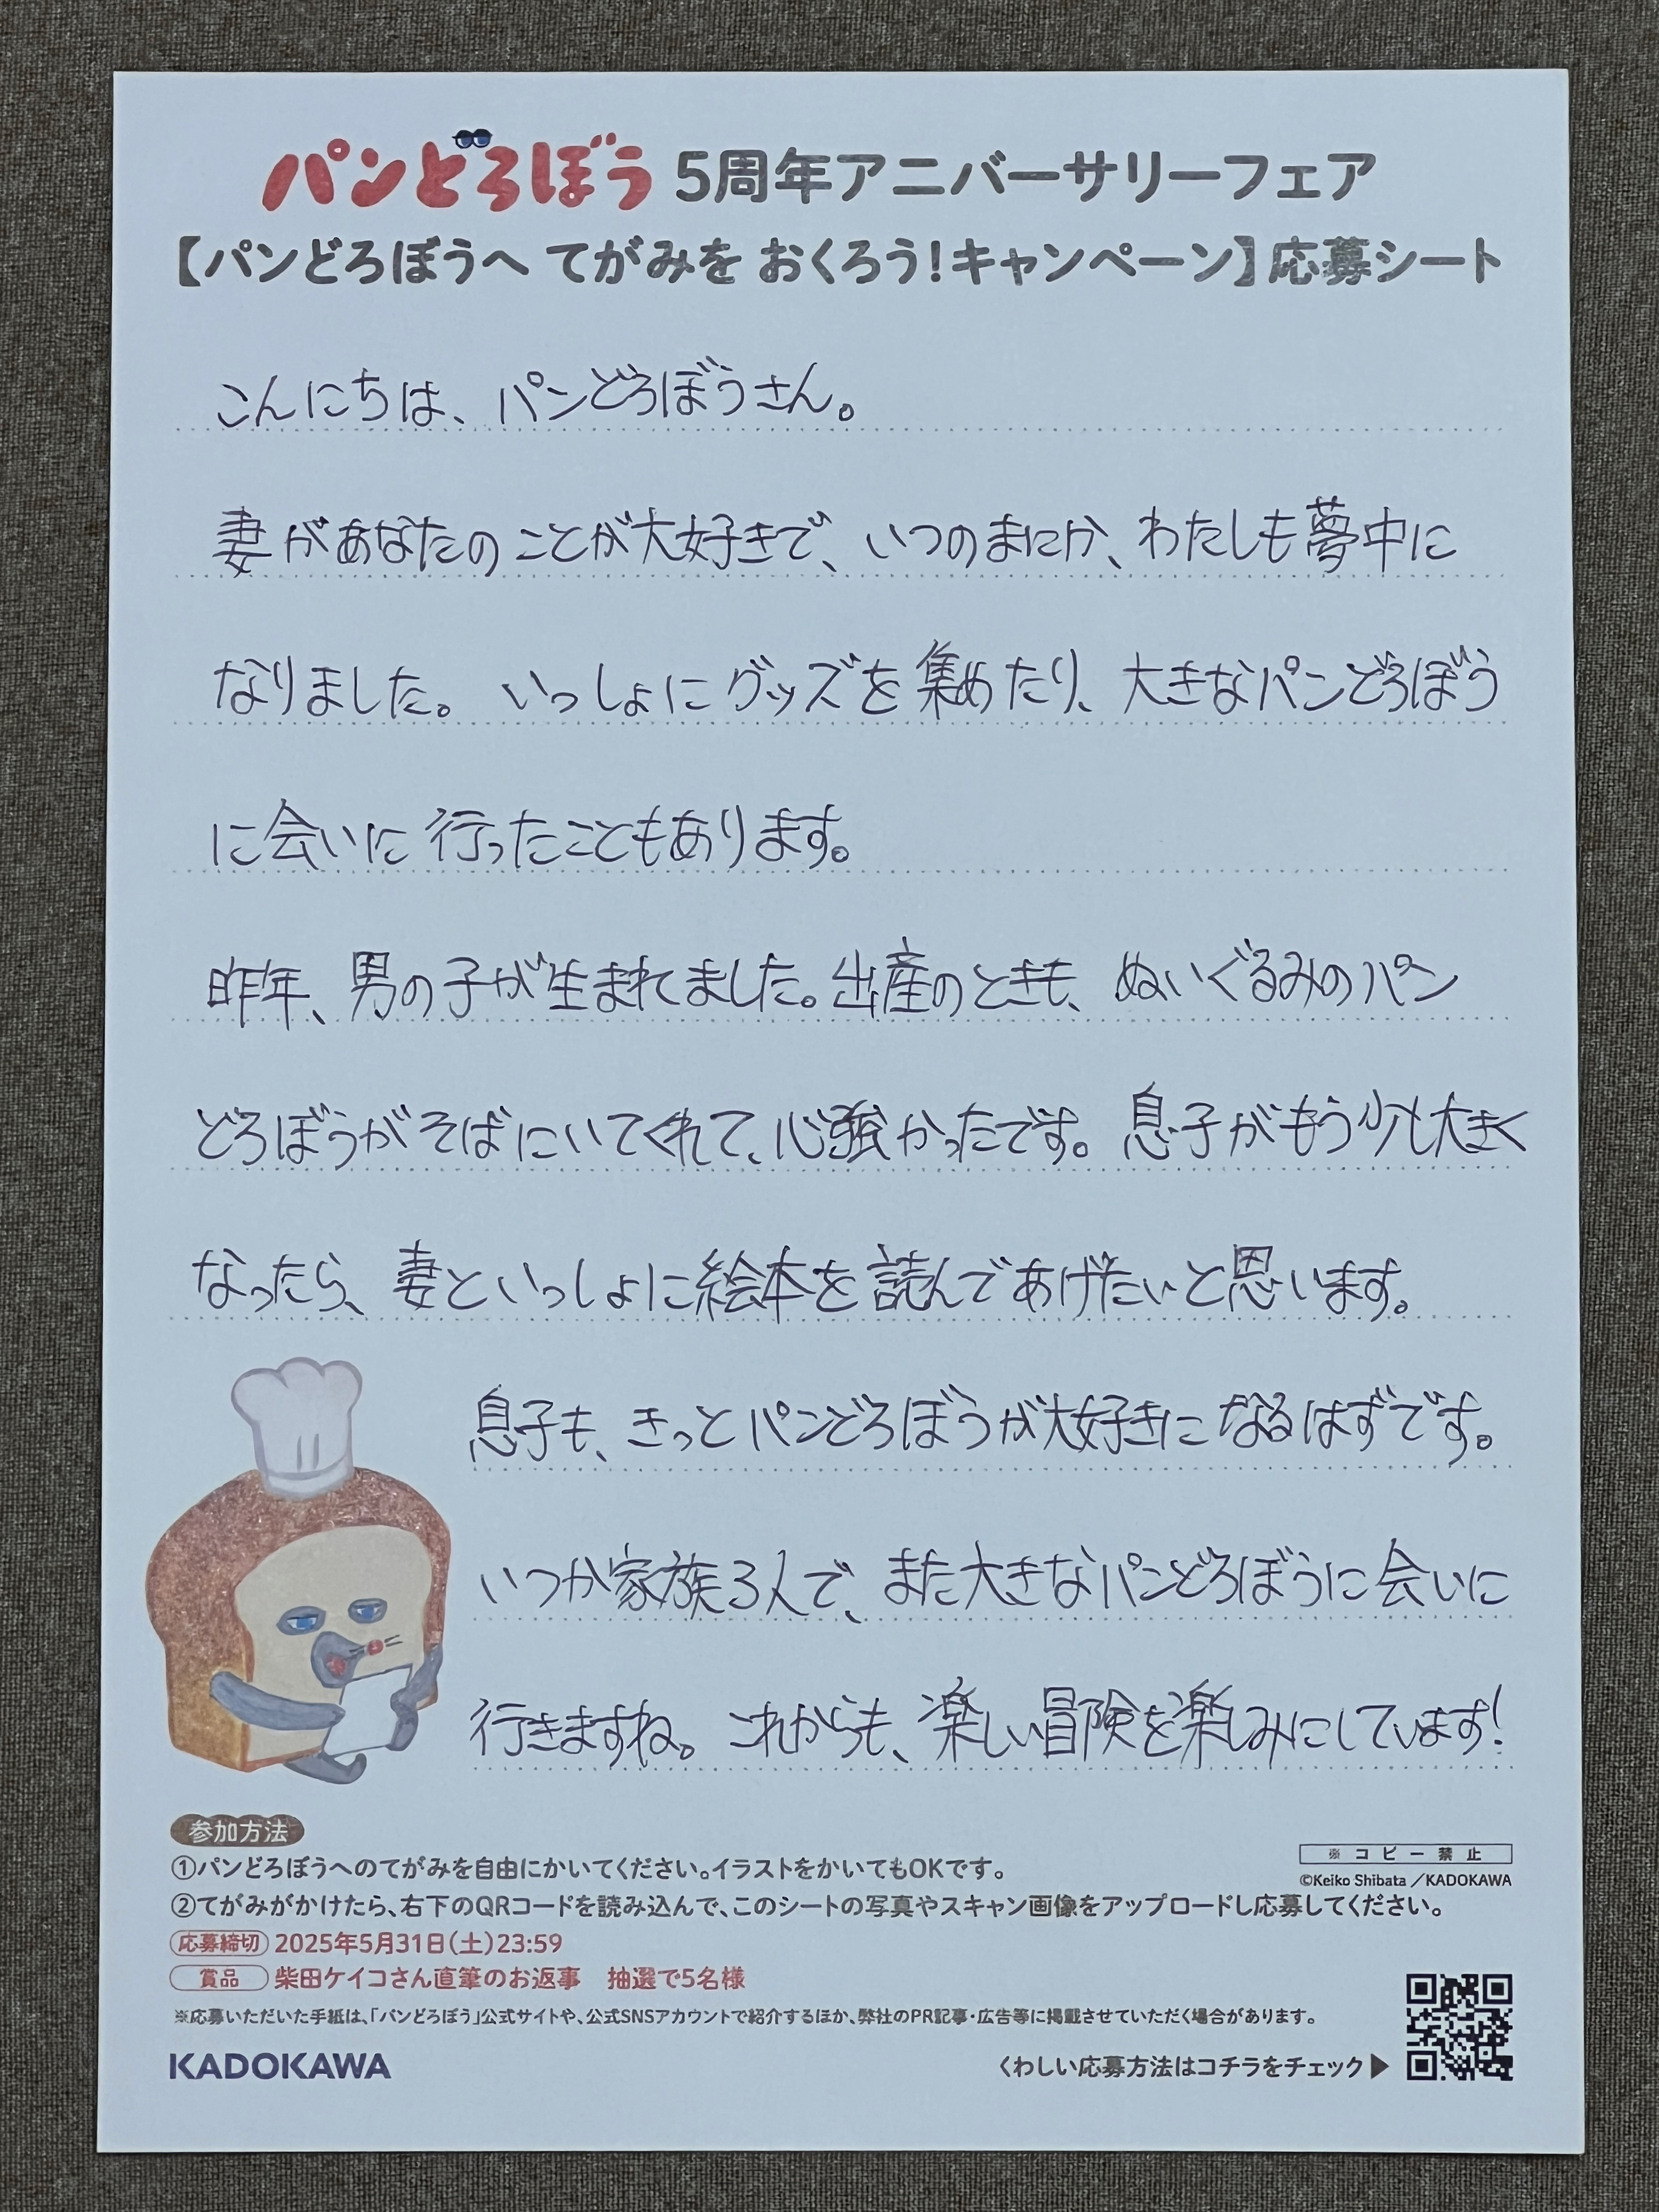 パンどろぼう 5周年アニバーサリーフェア
【パンどろぼうへ てがみを おくろう!キャンペーン】応募シート
こんにちは、パンどろぼうさん。
妻があなたのことが大好きで、いつのまにか、わたしも夢中に
なりました。 いっしょにグッズを集めたり、大きなパンどろぼう
に会いに行ったこともあります。
昨年、男の子が生まれてました。出産のときも、ぬいぐるみのパン
どろぼうがそばにいてくれて、心強かったです。息子がもう少し大きく
なったら、妻といっしょに絵本を読んであげたいと思います。
息子も、きっとパンどろぼうが大好きになるはずです。
いつか家族3人で、また大きなパンどろぼうに会いに
行きますね。これからも、楽しい冒険を楽しみにしています!
参加方法
①パンどろぼうへのてがみを自由にかいてください。イラストをかいてもOKです。
※コピー禁止
©Keiko Shibata／KADOKAWA
②てがみがかけたら、右下のQRコードを読み込んで、このシートの写真やスキャン画像をアップロードし応募してください。
応募締切 2025年5月31日(土)23:59
賞品 柴田ケイコさん直筆のお返事 抽選で5名様
※応募いただいた手紙は、「パンどろぼう」公式サイトや、公式SNSアカウントで紹介するほか、弊社のPR記事・広告等に掲載させていただく場合があります。
KADOKAWA
くわしい応募方法はコチラをチェック▶